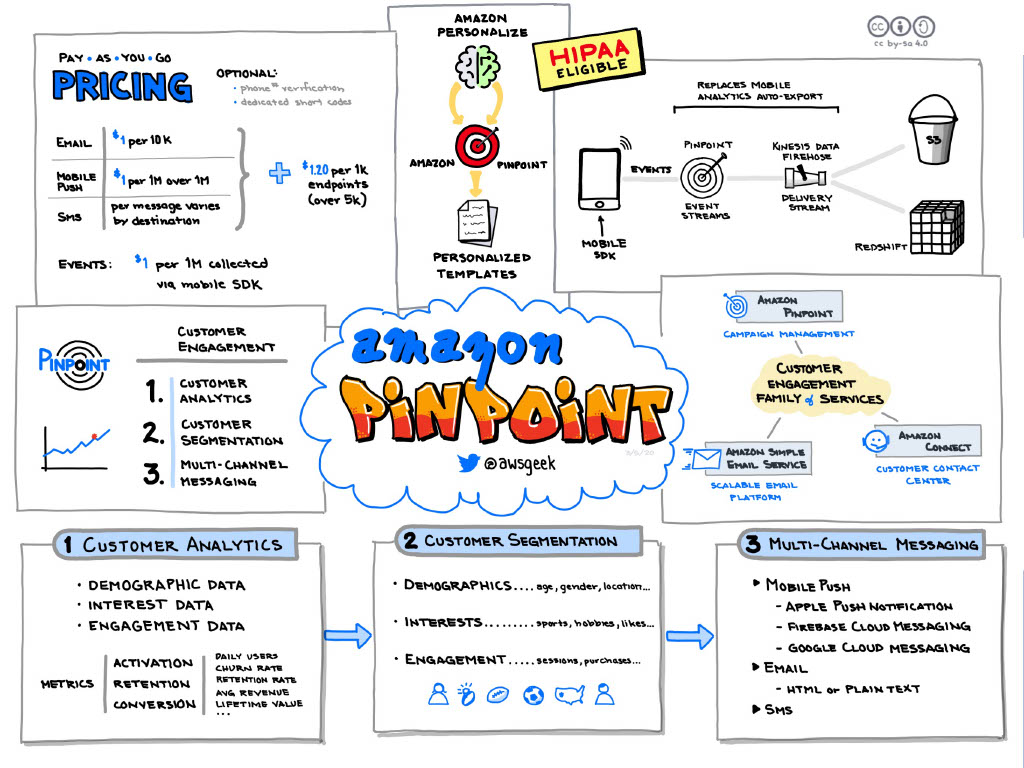 PAY • AS • YOU • GO
PRICING
OPTIONAL:
• phone # verification
• dedicated short codes
EMAIL
$1 per 10K
MOBILE
PUSH
$1 per 1M over 1M
SMS
per message varies
by destination
+
$1.20 per 1k
endpoints
(over 5k)
EVENTS:
$1 per 1M collected
via mobile SDK
AMAZON
PERSONALIZE
AMAZON
PINPOINT
PERSONALIZED
TEMPLATES
HIPAA
ELIGIBLE
cc by-sa 4.0
REPLACES MOBILE
ANALYTICS AUTO-EXPORT
EVENTS
MOBILE
SDK
PINPOINT
EVENT
STREAMS
KINESIS DATA
FIREHOSE
DELIVERY
STREAM
S3
REDSHIFT
PINPOINT
CUSTOMER
ENGAGEMENT
1. CUSTOMER
ANALYTICS
2. CUSTOMER
SEGMENTATION
3. MULTI-CHANNEL
MESSAGING
amazon
PINPOINT
@awsgeek
AMAZON
PINPOINT
CAMPAIGN MANAGEMENT
CUSTOMER
ENGAGEMENT
FAMILY of SERVICES
AMAZON SIMPLE
EMAIL SERVICE
SCALABLE EMAIL
PLATFORM
AMAZON
CONNECT
CUSTOMER CONTACT
CENTER
1 CUSTOMER ANALYTICS
• DEMOGRAPHIC DATA
• INTEREST DATA
• ENGAGEMENT DATA
METRICS
ACTIVATION
RETENTION
CONVERSION
DAILY USERS
CHURN RATE
RETENTION RATE
AVG REVENUE
LIFETIME VALUE
...
2 CUSTOMER SEGMENTATION
• DEMOGRAPHICS.... age, gender, location...
• INTERESTS........ sports, hobbies, likes...
• ENGAGEMENT..... sessions, purchases...
3 MULTI-CHANNEL MESSAGING
▶ MOBILE PUSH
- APPLE PUSH NOTIFICATION
- FIREBASE CLOUD MESSAGING
- GOOGLE CLOUD MESSAGING
▶ EMAIL
- HTML or PLAIN TEXT
▶ SMS